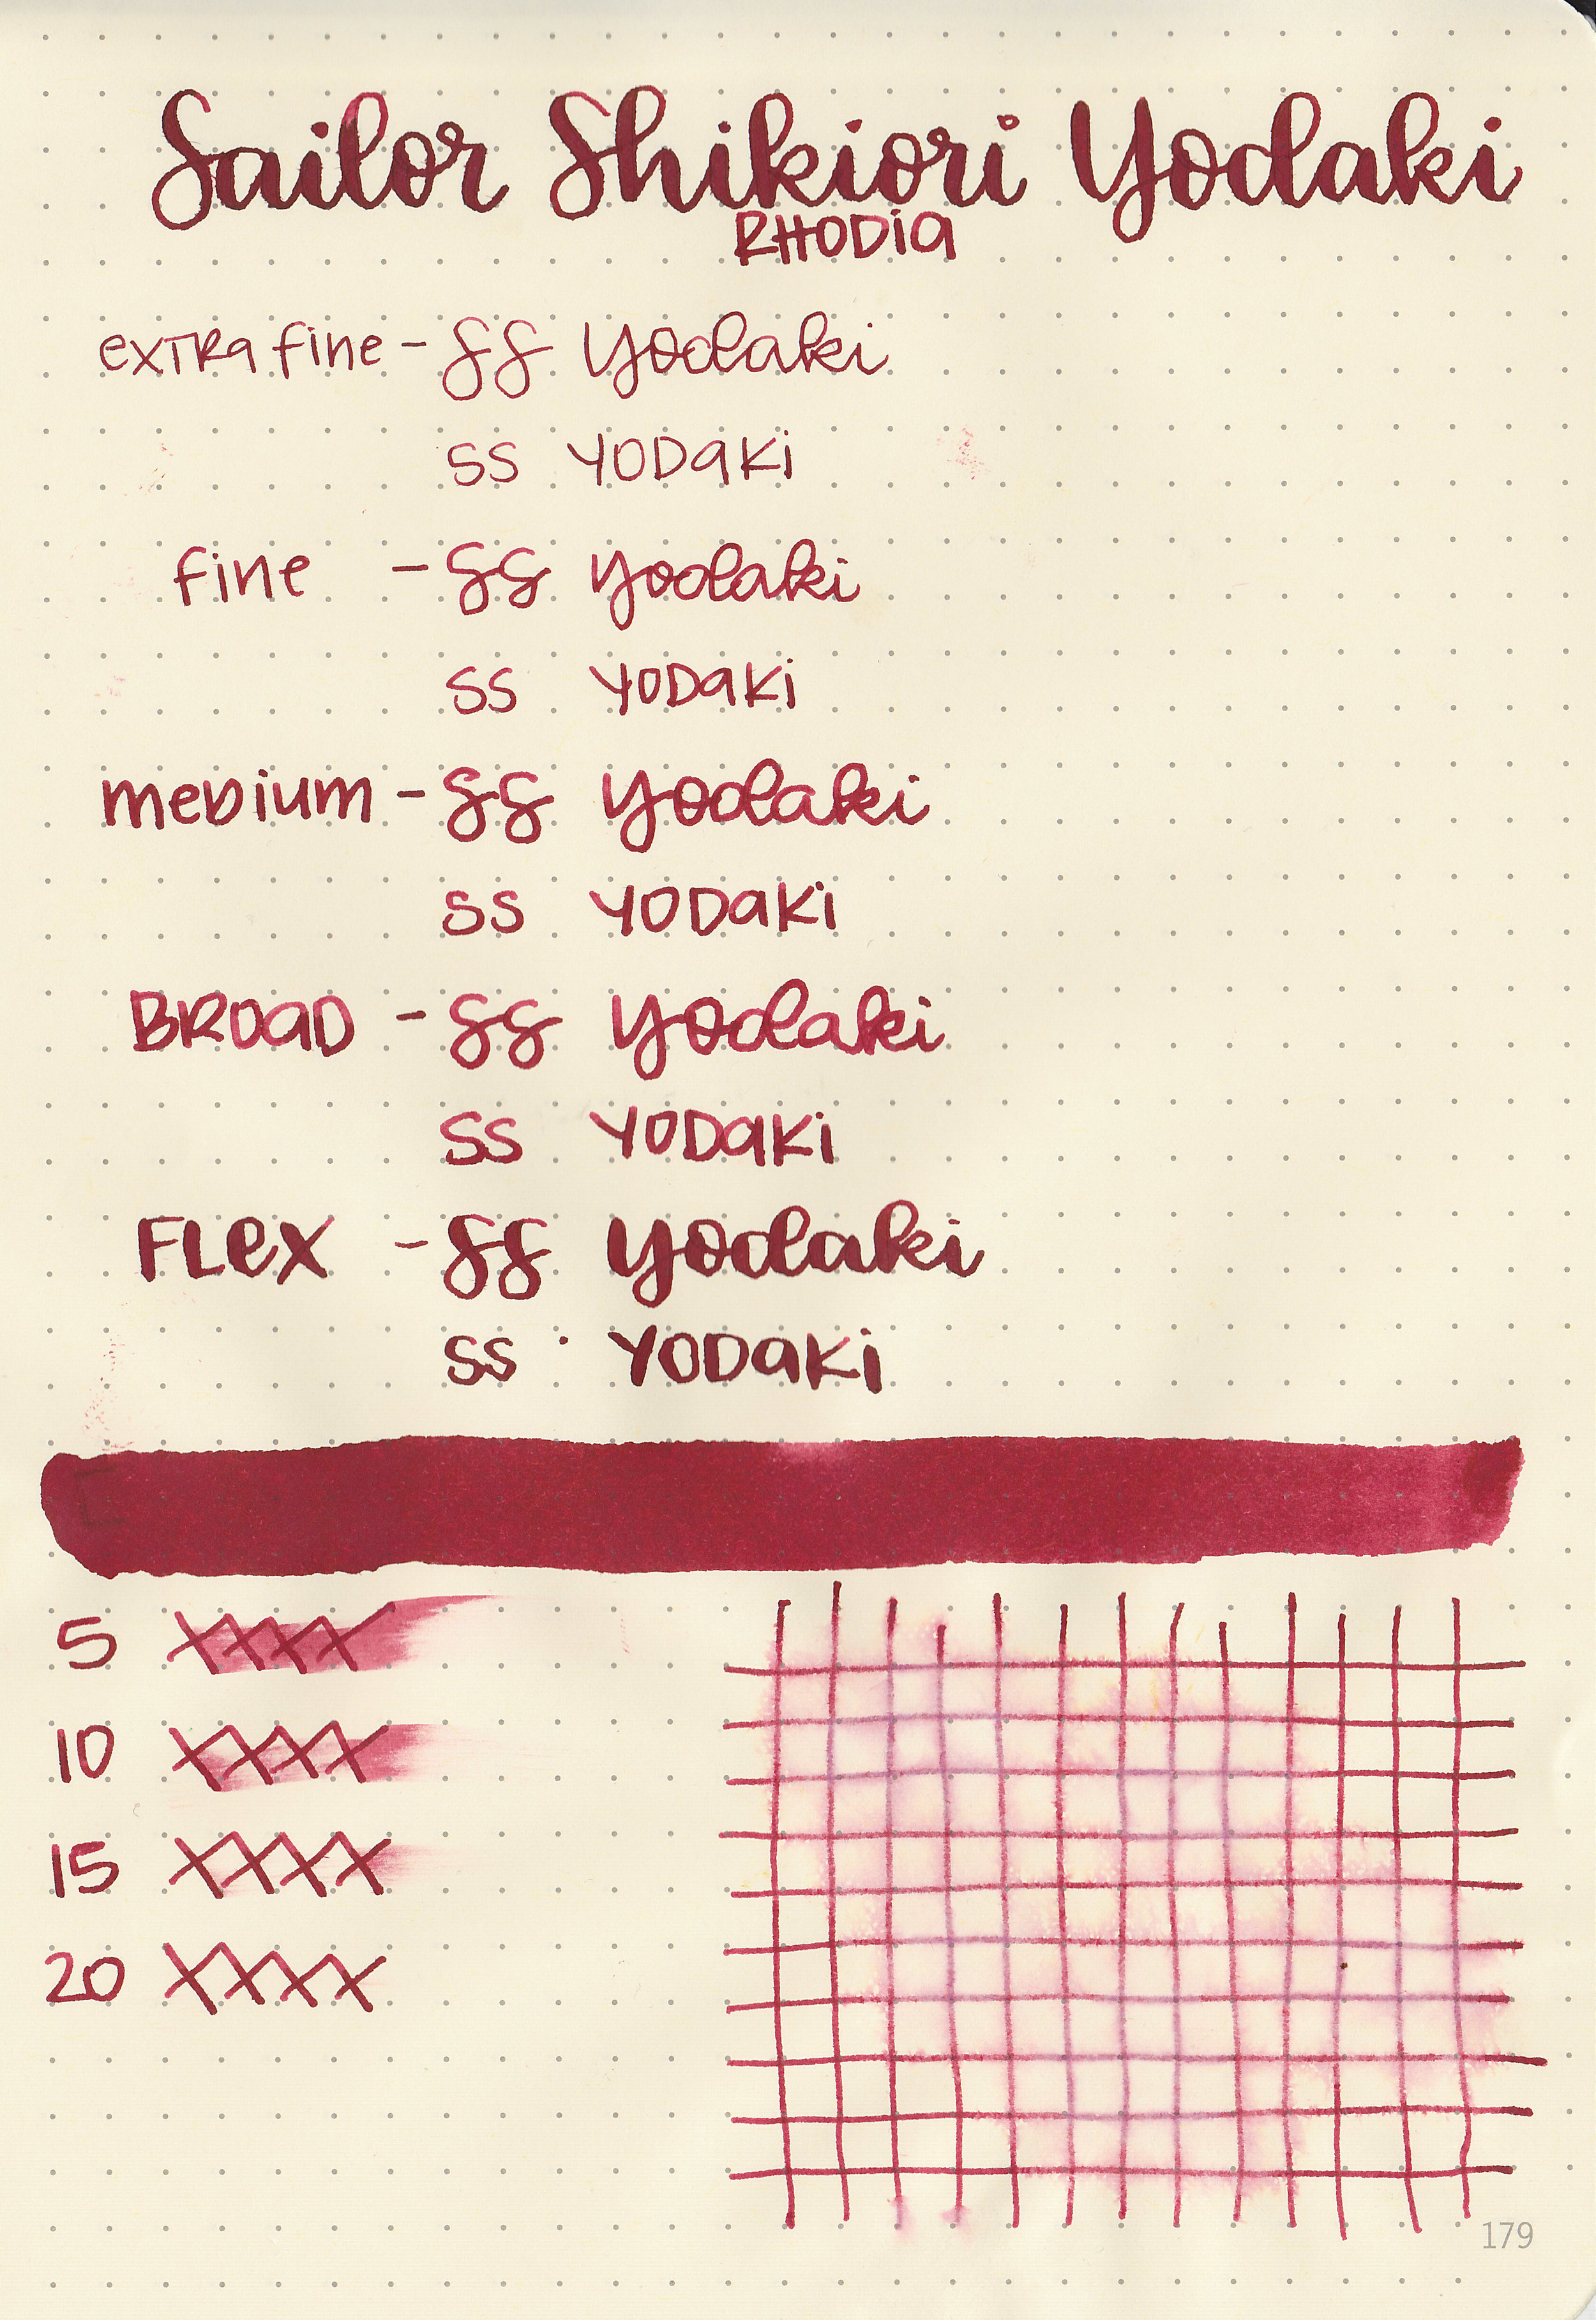 Sailor Shikiori Yodaki
RHODIA
extra fine - SS Yodaki
SS YODAKI
fine - SS Yodaki
SS YODAKI
medium - SS Yodaki
SS YODAKI
BROAD - SS Yodaki
SS YODAKI
FLEX - SS Yodaki
SS YODAKI
5 XXXX
10 XXXX
15 XXXX
20 XXXX
179